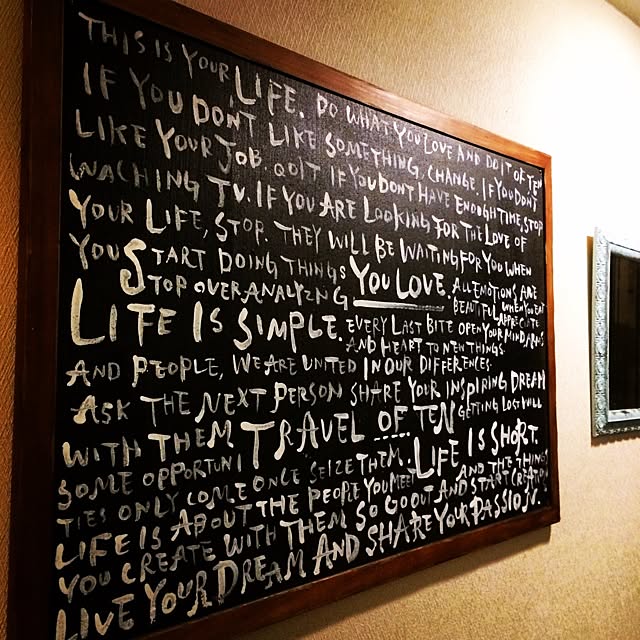 THIS IS YOUR LIFE. DO WHAT YOU LOVE AND DO IT OFTEN
IF YOU DON'T LIKE SOMETHING, CHANGE. IF YOU DON'T
LIKE YOUR JOB. QOIT IF YOU DONT HAVE ENOUGH TIME, STOP
WACHING TV. IF YOU ARE LOOKING FOR THE LOVE OF
YOUR LIFE, STOP. THEY WILL BE WAITING FOR YOU WHEN
YOU START DOING THINGS YOU LOVE. ALL EMOTIONS ARE
STOP OVER ANALYZNG BEAUTIFUL WHEN YOU EAT
LIFE IS SIMPLE. EVERY LAST BITE OPEN YOUR MIND ARMS
AND HEART TO NEW THINGS
AND PEOPLE, WE ARE UNITED IN OUR DIFFERENCES
ASK THE NEXT PERSON SHARE YOUR INSPIRING DREAM
WITH THEM TRAVEL OF TEN GETTING LOST WILL
SOME OPPORTUNI
TIES ONLY COME ONCE SEIZE THEM. LIFE IS SHORT.
LIFE IS ABOUT THE PEOPLE YOU MEET AND THE THINGS
YOU CREATE WITH THEM SO GO OUT AND START CREATING
LIVE YOUR DREAM AND SHARE YOUR PASSION.